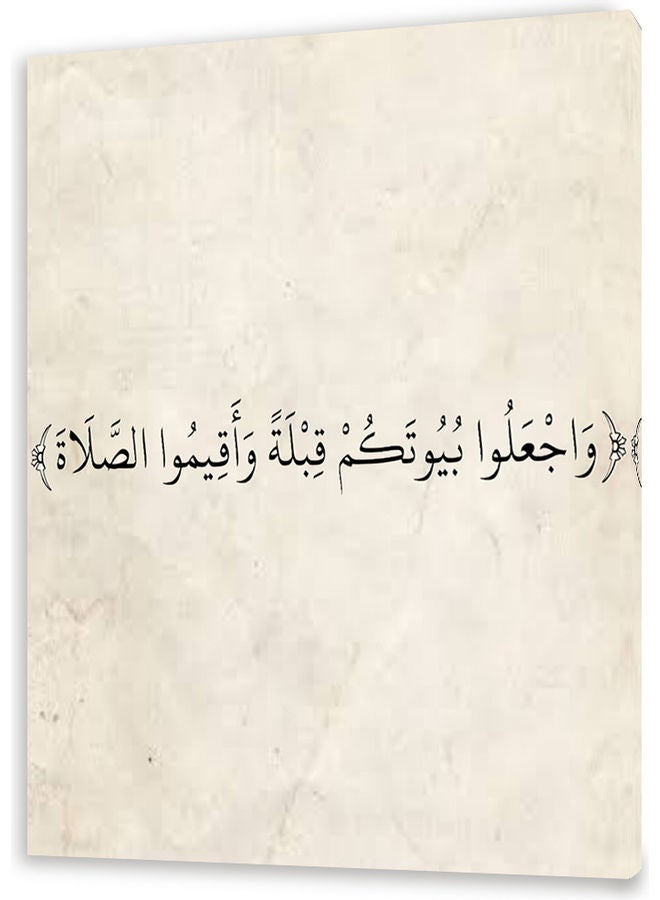 ﴿وَاجْعَلُوا بُيُوتَكُمْ قِبْلَةً وَأَقِيمُوا الصَّلَاةَ﴾